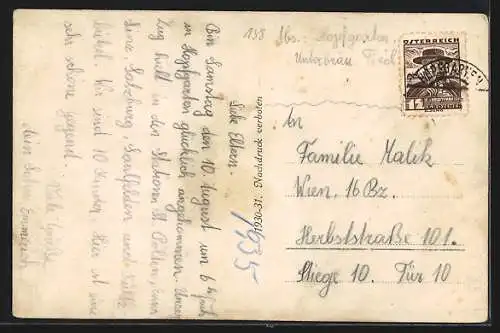 158 Abs.: Hopfgarten
Unterbräu Tirol
ÖSTERREICH
12
HOPFGARTEN
An
Familie Malik
Wien. 16 Bz.
Herbststraße 101.
Stiege 10. Tür 10
1930-31. Nachdruck verboten
1935
Liebe Eltern.
Bin Samstag den 10. August um 6h früh
in Hopfgarten glücklich angekommen. Unser
Zug hielt in den Stationen St. Pölten,
Linz, Salzburg, Saalfelden und
Kitzbühel. Wir sind 10 Kinder. Hier ist eine
sehr schöne Gegend.
Viele Grüße
Euer Sohn Emmerich